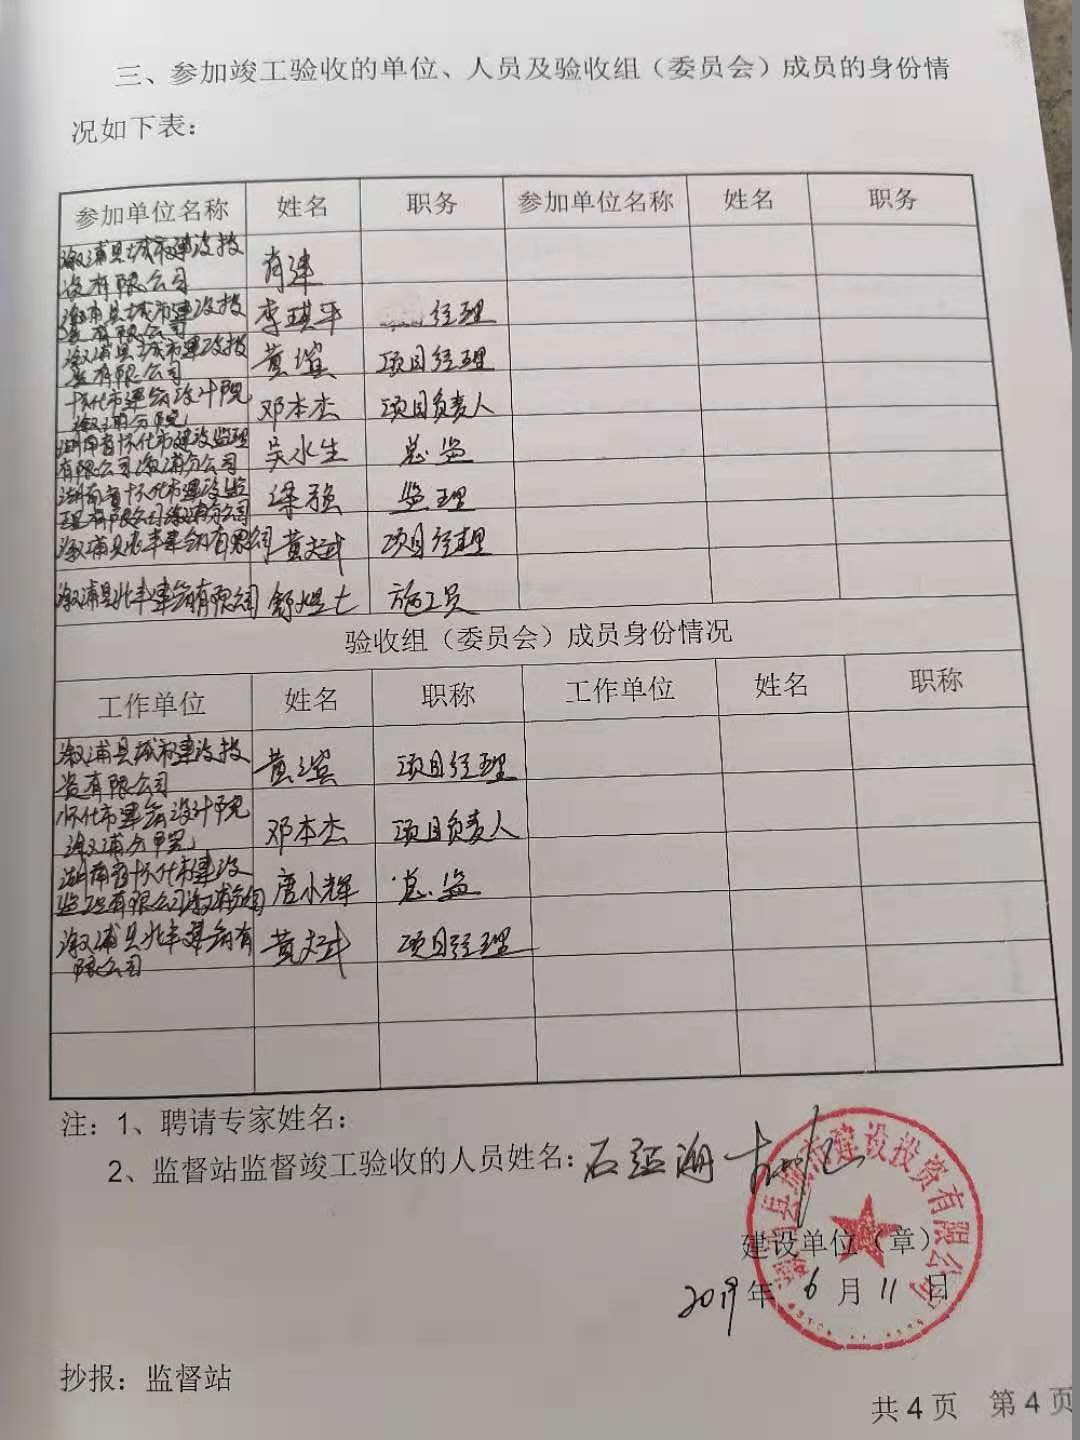 三、参加竣工验收的单位、人员及验收组（委员会）成员的身份情
况如下表：
参加单位名称 姓名 职务 参加单位名称 姓名 职务
溆浦县城市建设投
资有限公司 肖建
溆浦县城市建设投
资有限公司 李琪平 经理
溆浦县城市建设投
资有限公司 黄滨 项目经理
怀化市建筑设计院
溆浦分院 邓本杰 项目负责人
湖南省怀化市建设监理
有限公司溆浦分公司 吴水生 总监
湖南省怀化市建设监
理有限公司溆浦分公司 梁强 监理
溆浦县兆丰建筑有限公司 黄斌 项目经理
溆浦县兆丰建筑有限公司 舒煜七 施工员
验收组（委员会）成员身份情况
工作单位 姓名 职称 工作单位 姓名 职称
溆浦县城市建设投
资有限公司 黄滨 项目经理
怀化市建筑设计院
溆浦分院 邓本杰 项目负责人
湖南省怀化市建设
监理有限公司溆浦分公司 唐小辉 总监
溆浦县兆丰建筑有
限公司 项目经理
注：1、聘请专家姓名：
2、监督站监督竣工验收的人员姓名：
溆浦县城市建设投资有限公司
建设单位（章）
2019年 6 月 11 日
抄报：监督站
共 4 页 第 4 页